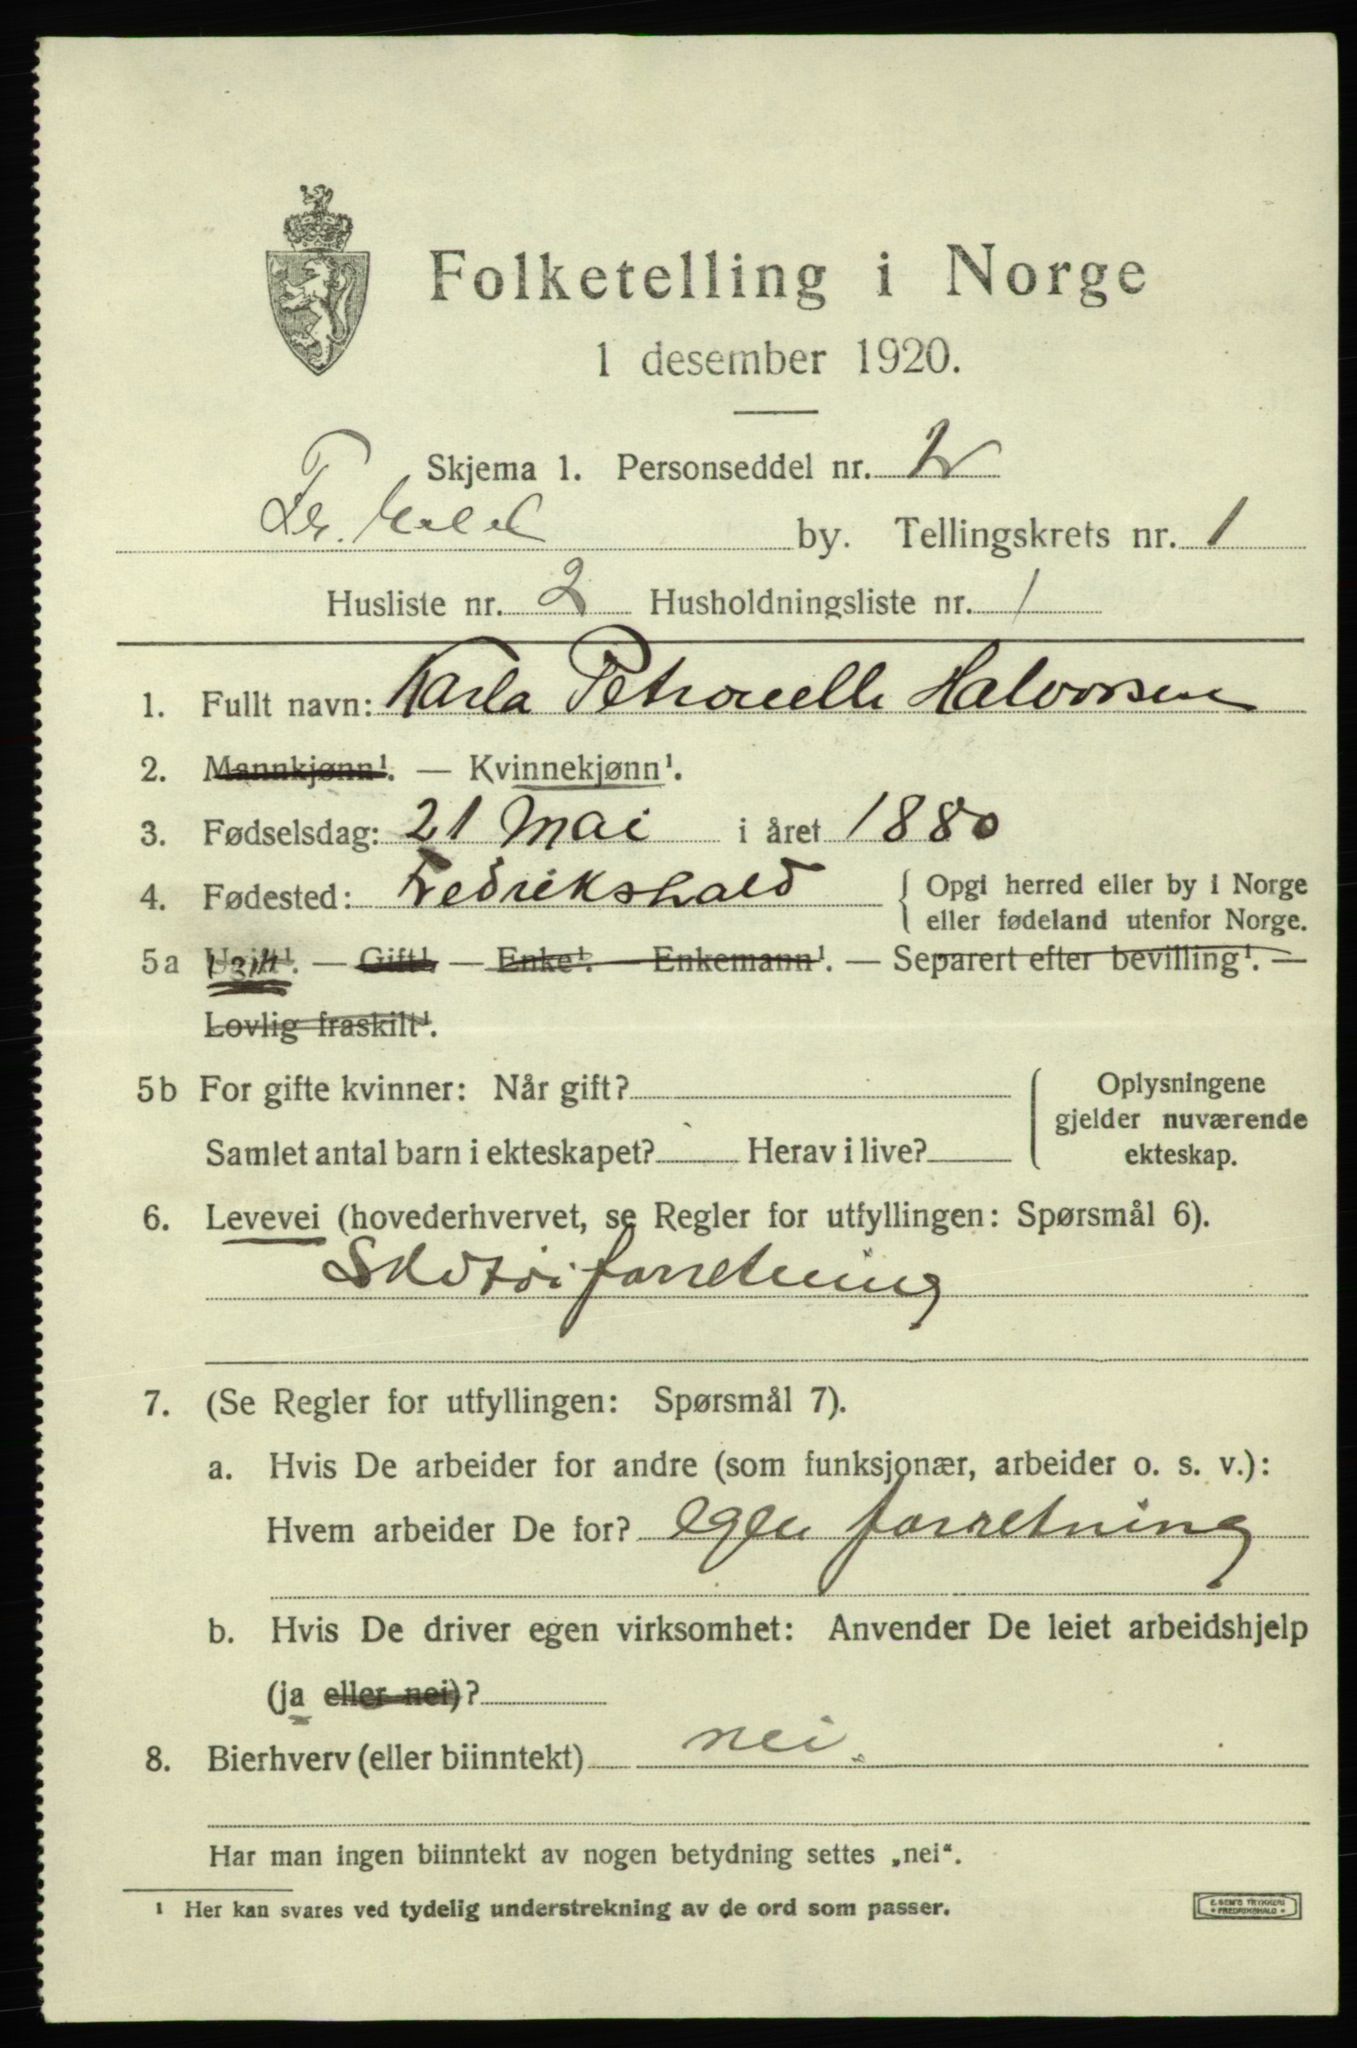 Folketelling i Norge
1 desember 1920.
Skjema 1. Personseddel nr. 2
Fr.hald by. Tellingskrets nr. 1
Husliste nr. 2 Husholdningsliste nr. 1
1. Fullt navn: Karla Petronelle Halvorsen
2. Mannkjønn¹. — Kvinnekjønn¹.
3. Fødselsdag: 21 Mai i året 1880
4. Fødested: Fredrikshald { Opgi herred eller by i Norge
eller fødeland utenfor Norge.
5a Ugift¹. — Gift¹. — Enke¹. — Enkemann¹. — Separert efter bevilling¹. —
Lovlig fraskilt¹.
5b For gifte kvinner: Når gift? { Oplysningene
gjelder nuværende
Samlet antal barn i ekteskapet? Herav i live? ekteskap.
6. Levevei (hovederhvervet, se Regler for utfyllingen: Spørsmål 6).
Skotøiforretning
7. (Se Regler for utfyllingen: Spørsmål 7).
a. Hvis De arbeider for andre (som funksjonær, arbeider o. s. v.):
Hvem arbeider De for? egen forretning
b. Hvis De driver egen virksomhet: Anvender De leiet arbeidshjelp
(ja eller nei)?
8. Bierhverv (eller biinntekt) nei.
Har man ingen biinntekt av nogen betydning settes „nei“.
¹ Her kan svares ved tydelig understrekning av de ord som passer.
E. SEM'S TRYKKERI
FREDRIKSHALD